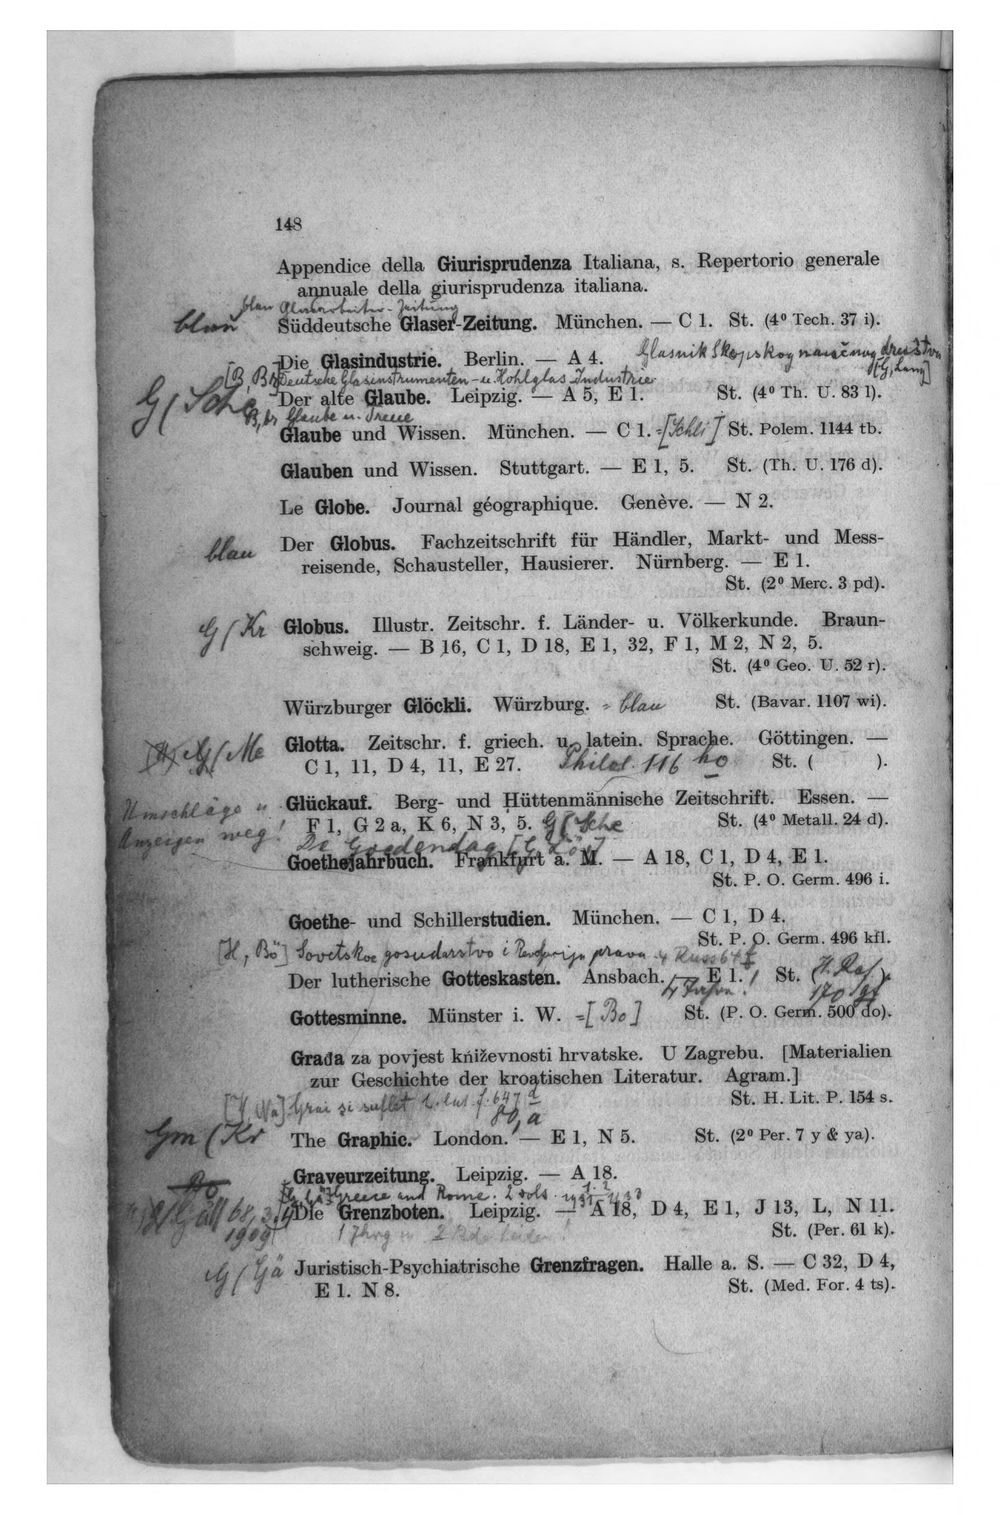 148
Appendice della Giurisprudenza Italiana, s. Repertorio generale
annuale della giurisprudenza italiana.
blau
blau Glasarbeiter-Zeitung
Süddeutsche Glaser-Zeitung. München. — C 1. St. (4⁰ Tech. 37 i).
Glasnik Skopskog naučnog društva
Die Glasindustrie. Berlin. — A 4.
Deutsche Glasinstrumenten- u. Hohlglas Industrie
G (Sche
Der alte Glaube. Leipzig. — A 5, E 1. St. (4⁰ Th. U. 83 l).
Glaube u. Treue
Glaube und Wissen. München. — C 1. =[Schli] St. Polem. 1144 tb.
Glauben und Wissen. Stuttgart. — E 1, 5. St. (Th. U. 176 d).
Le Globe. Journal géographique. Genève. — N 2.
blau
Der Globus. Fachzeitschrift für Händler, Markt- und Mess-
reisende, Schausteller, Hausierer. Nürnberg. — E 1.
St. (2⁰ Merc. 3 pd).
G (Kr
Globus. Illustr. Zeitschr. f. Länder- u. Völkerkunde. Braun-
schweig. — B 16, C 1, D 18, E 1, 32, F 1, M 2, N 2, 5.
St. (4⁰ Geo. U. 52 r).
Würzburger Glöckli. Würzburg. = blau St. (Bavar. 1107 wi).
G (Me
Glotta. Zeitschr. f. griech. u. latein. Sprache. Göttingen. —
C 1, 11, D 4, 11, E 27. Philol. 116 ho St. ( ).
Umschläge u
Anzeigen weg!
Glückauf. Berg- und Hüttenmännische Zeitschrift. Essen. —
F 1, G 2 a, K 6, N 3, 5. G (Sche St. (4⁰ Metall. 24 d).
De Goedendag
Goethejahrbuch. Frankfurt a. M. — A 18, C 1, D 4, E 1.
St. P. O. Germ. 496 i.
Goethe- und Schillerstudien. München. — C 1, D 4.
St. P. O. Germ. 496 kfl.
[H, Bö] Sovetskoe gosudarstvo i prava
Der lutherische Gotteskasten. Ansbach. — E 1. St.
Gottesminne. Münster i. W. =[Bo] St. (P. O. Germ. 500 do).
Građa za povjest kńiževnosti hrvatske. U Zagrebu. [Materialien
zur Geschichte der kroatischen Literatur. Agram.]
St. H. Lit. P. 154 s.
Grai si suflet
Gm (Kr
The Graphic. London. — E 1, N 5. St. (2⁰ Per. 7 y & ya).
Graveurzeitung. Leipzig. — A 18.
Greece and Rome.
Die Grenzboten. Leipzig. — A 18, D 4, E 1, J 13, L, N 11.
1909
St. (Per. 61 k).
G (Gä
Juristisch-Psychiatrische Grenzfragen. Halle a. S. — C 32, D 4,
E 1. N 8. St. (Med. For. 4 ts).